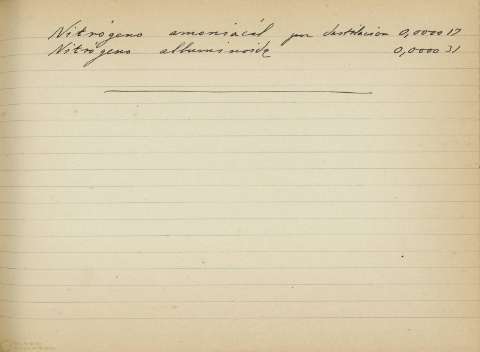 Nitrógeno amoniacál por destilacion 0,000017
Nitrógeno albuminoide 0,000031